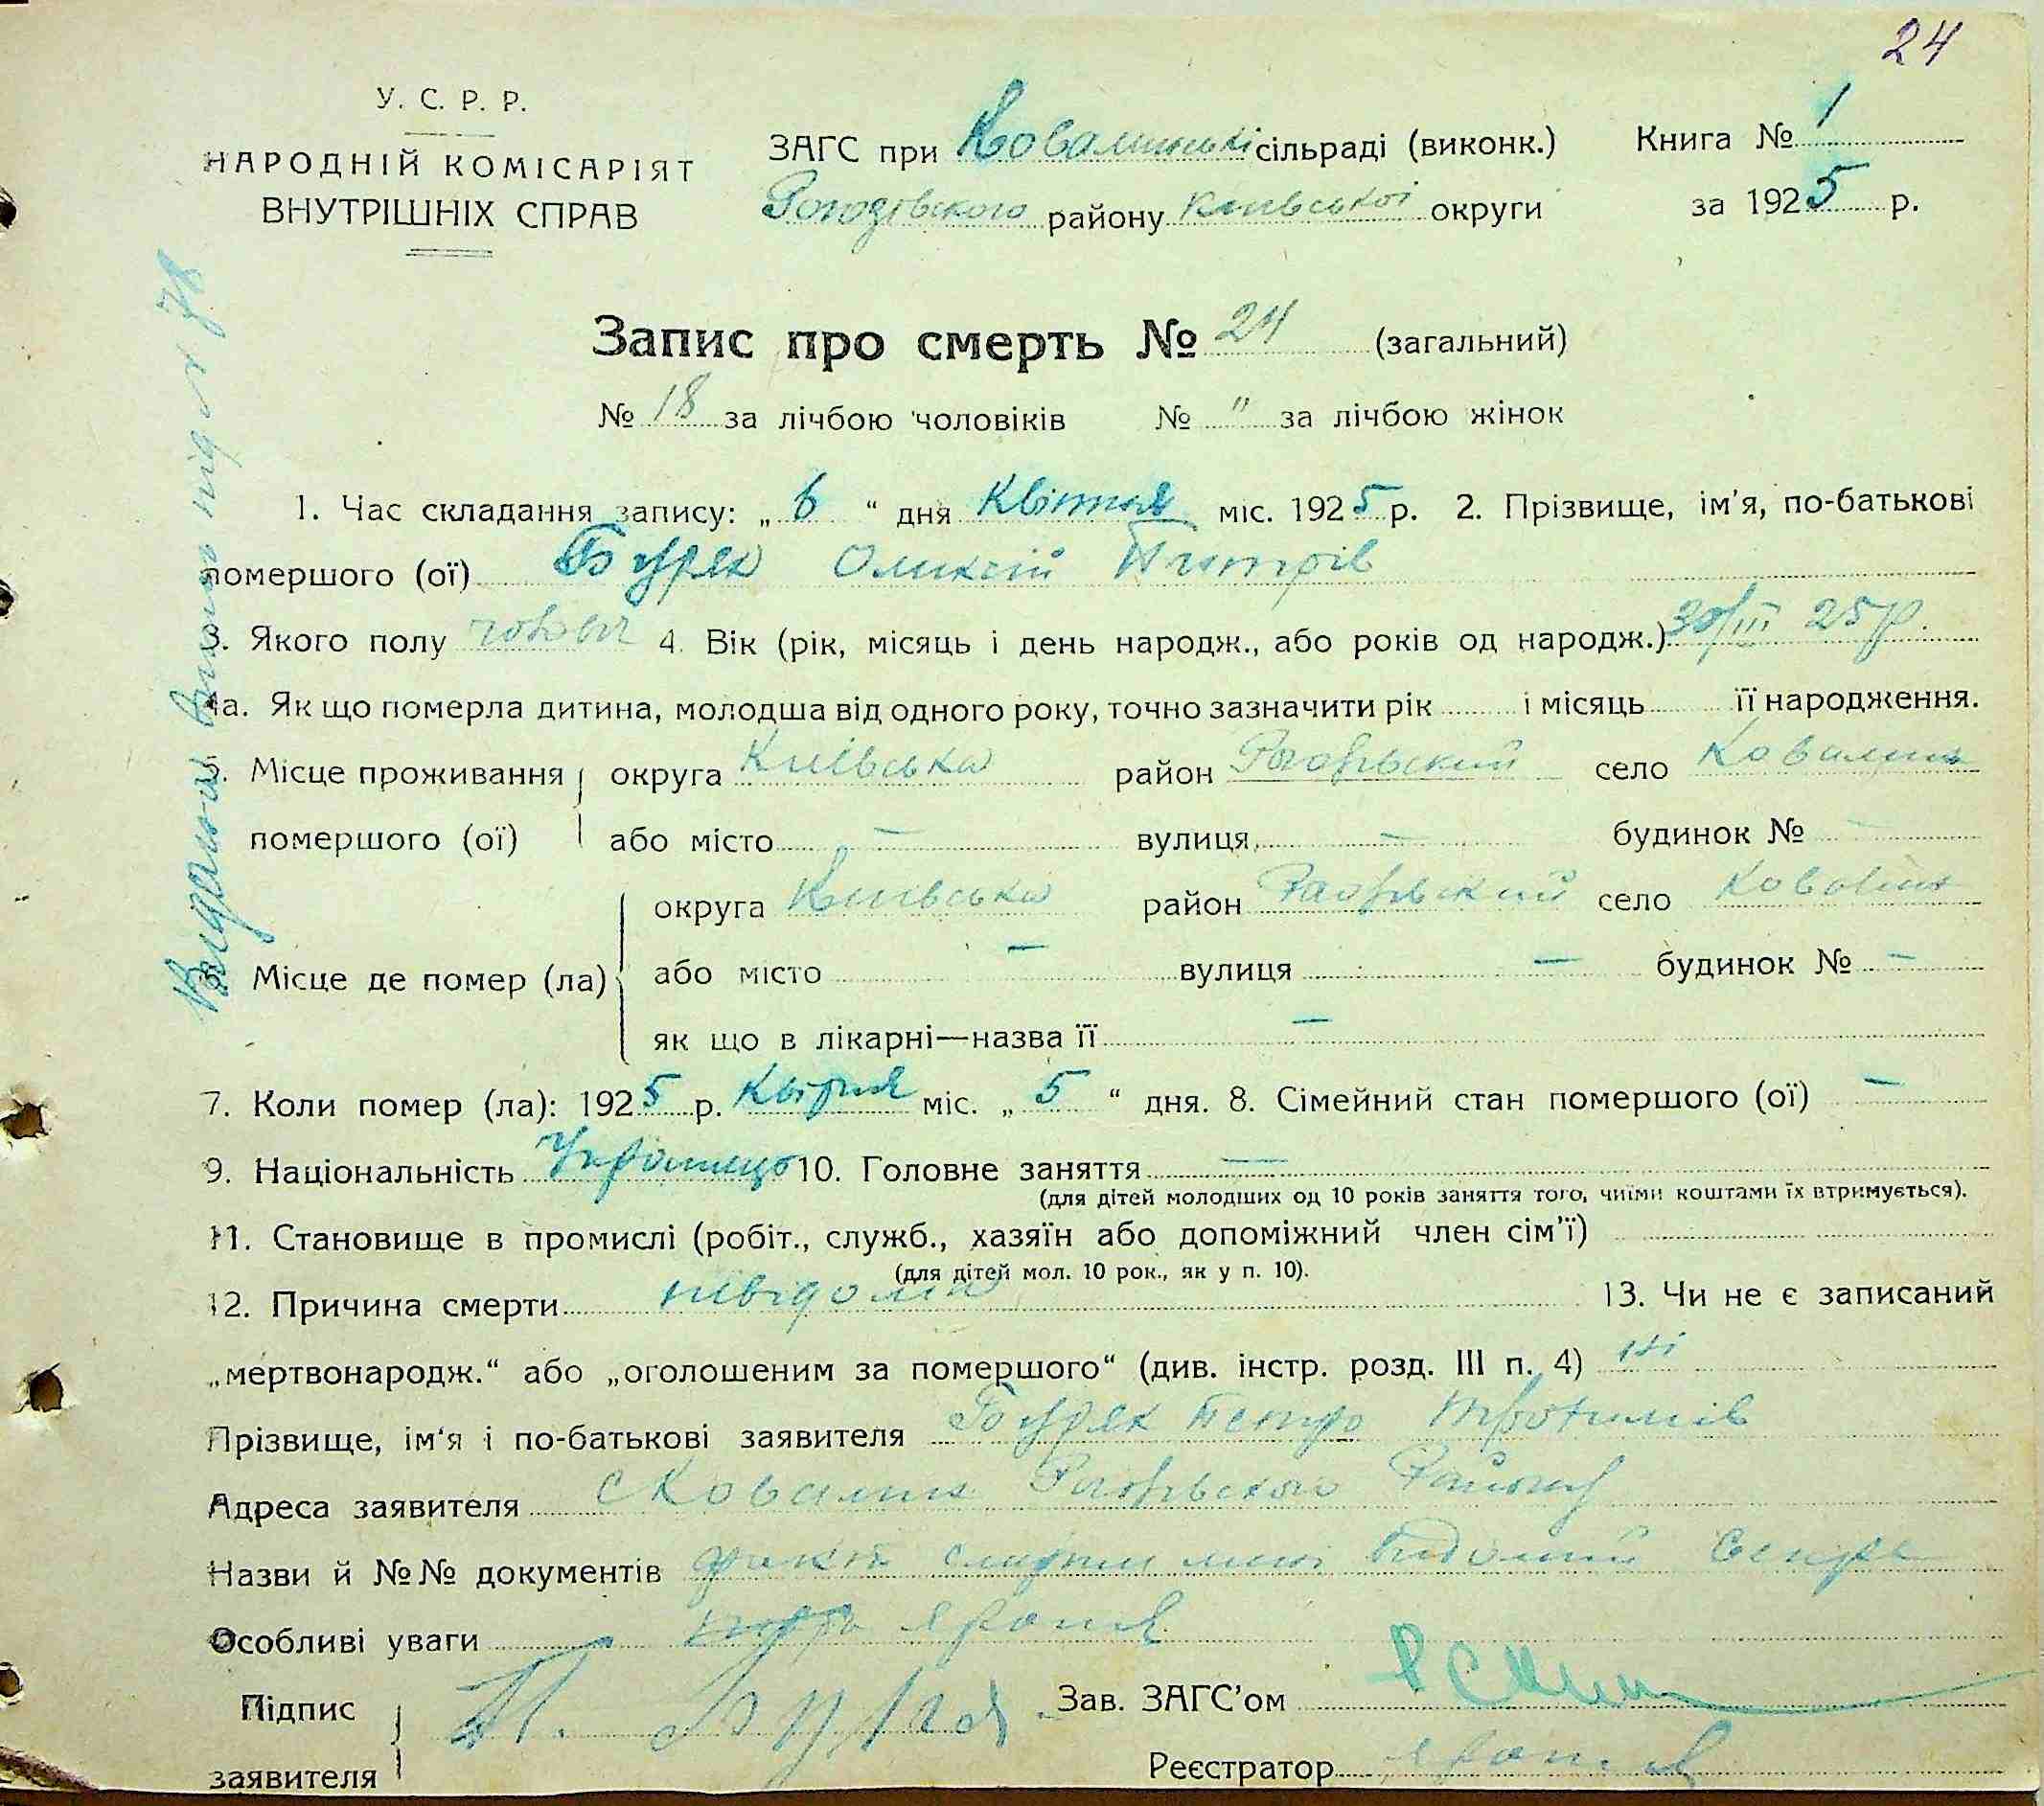 24
У. С. Р. Р.
НАРОДНІЙ КОМІСАРІЯТ
ВНУТРІШНІХ СПРАВ
ЗАГС при Ковалинські сільраді (виконк.) Книга № 1
Рогозівского району Київської округи за 1925 р.
Запис про смерть № 24 (загальний)
№ 18 за лічбою чоловіків № " за лічбою жінок
1. Час складання запису: „ 6 “ дня Квітня міс. 1925 р. 2. Прізвище, ім'я, по-батькові
помершого (ої) Буряк Олексій Петрів
3. Якого полу чоловіч 4. Вік (рік, місяць і день народж., або років од народж.) 30/III 25 р.
4а. Як що померла дитина, молодша від одного року, точно зазначити рік і місяць її народження.
5. Місце проживання округа Київська район село Ковалин
помершого (ої) або місто — вулиця — будинок № —
округа Київська район село Ковалин
6. Місце де помер (ла) або місто — вулиця — будинок № —
як що в лікарні—назва її —
7. Коли помер (ла): 1925 р. Квітня міс. „ 5 “ дня. 8. Сімейний стан помершого (ої) —
9. Національність Украинець 10. Головне заняття —
(для дітей молодших од 10 років заняття того, чиїми коштами їх втримується).
11. Становище в промислі (робіт., служб., хазяїн або допоміжний член сім'ї)
(для дітей мол. 10 рок., як у п. 10).
12. Причина смерти невідома 13. Чи не є записаний
„мертвонародж.“ або „оголошеним за помершого“ (див. інстр. розд. III п. 4) ні
Прізвище, ім'я і по-батькові заявителя Буряк Петро Трохимів
Адреса заявителя с Ковалин Району
Назви й №№ документів факт смерти мені відомий
Особливі уваги
Підпис заявителя П. Буряк Зав. ЗАГС'ом
Реєстратор
Виданий під № 78